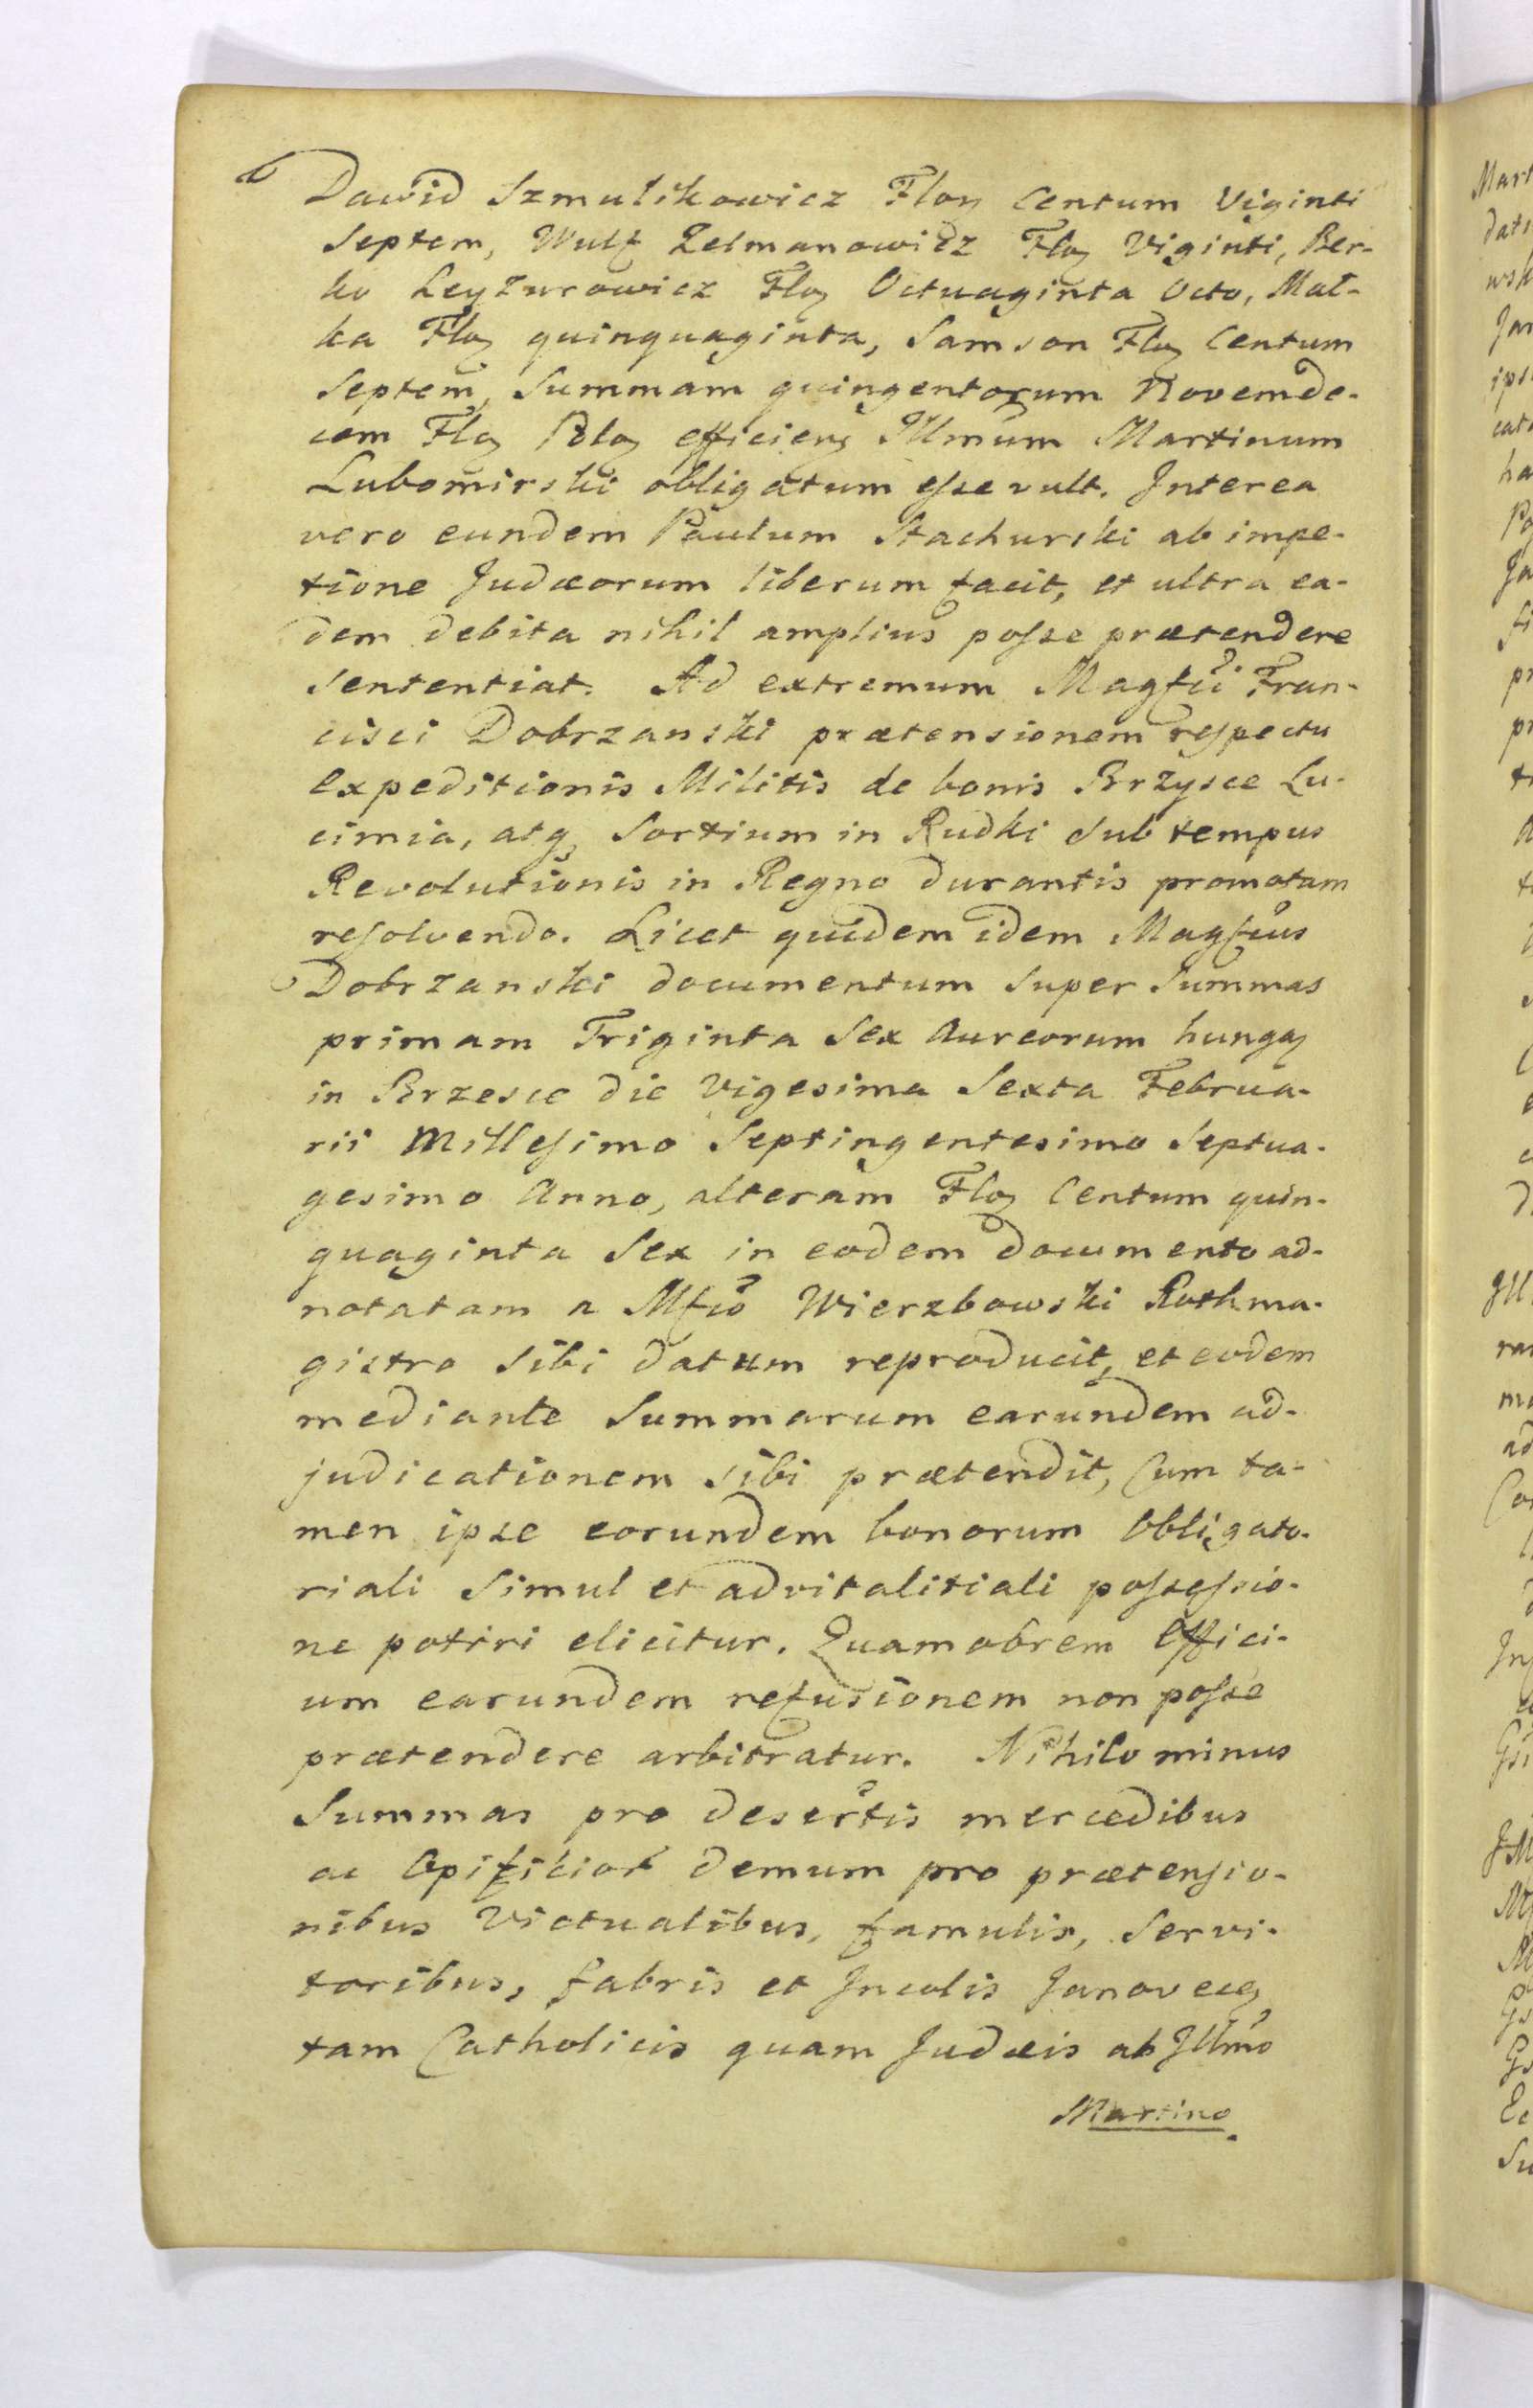 Dawid Szmulikowicz Flon Centum Viginti
Septem, Wulf Zelmanowicz Flo₃ Viginti, Ber-
ko Leyzurowicz Flo₃ Octuaginta Octo, Mał-
ka Flo₃ quinquaginta, Samson Flo₃ Centum
Septem, Summam quingentorum Novemde-
cem Flo₃ Polo₃ efficien₃ Illmum Martinum
Lubomirski obligatum esse vult. Interea
vero eundem Paulum Stachurski ab impe-
tione Judæorum liberum facit, et ultra ea-
dem debita nihil amplius posse prætendere
Sententiat. Ad extremum Magfci Fran-
cisci Dobrzanski prætensionem respectu
Expeditionis Militis de bonis Brzysce Lu-
cimia, atq₃ Sortium in Rudki Sub tempus
Revolutionis in Regno durantis promotam
resolvendo. Licet quidem idem Magfcus
Dobrzanski documentum Super Summas
primam Triginta Sex Aureorum hunga₃
in Brzesce die Vigesima Sexta Februa-
rii Millesimo Septingentesimo Septua-
gesimo Anno, alteram Flo₃ Centum quin-
quaginta Sex in eodem documento ad-
notatam a Mfco Wierzbowski Rothma-
gistro Sibi datum reproducit, et eodem
mediante Summarum earundem ad-
judicationem Sibi prætendit, Cum ta-
men ipse eorundem bonorum Obligato-
riali Simul et advitalitiali possessio-
ne potiri elicitur. Quamobrem Offici-
um earundem refusionem non posse
prætendere arbitratur. Nihilominus
Summas pro desertis mercedibus
ac Opificior demum pro prætensio-
nibus Victualibus, famulis, Servi-
toribus, fabris et Incolis Janovece₃
tam Catholicis quam Judæis ab Illmo
Martino
Mart
ha